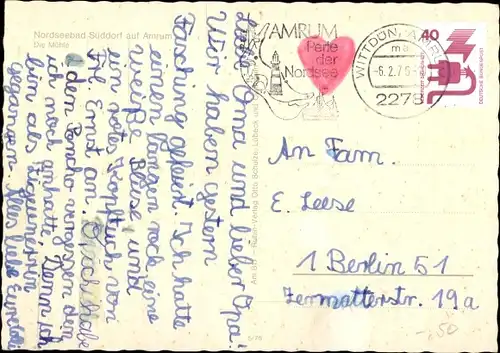 Nordseebad Süddorf auf Amrum
Die Mühle
Liebe Oma und lieber Opa!
Wir haben gestern
Fasching gefeiert. Ich hatte
einen langen rock eine
weiße Bluse und
ein rotes Kopftuch von
Frl. Ernst an. Doch habe
den Poncho vergessen den
ich noch anhatte, Denn ich
bin als Zigeunerin
gegangen. Alles liebe Eure
Ruton-Verlag Otto Schulze Lübeck
AMRUM
Perle
der
Nordsee
WITTDÜN, AMRUM
ma
-6.2.75
2278
40
DEUTSCHE BUNDESPOST
An Fam.
E. Leese
1 Berlin 51
Zermatterstr. 19a
-.50